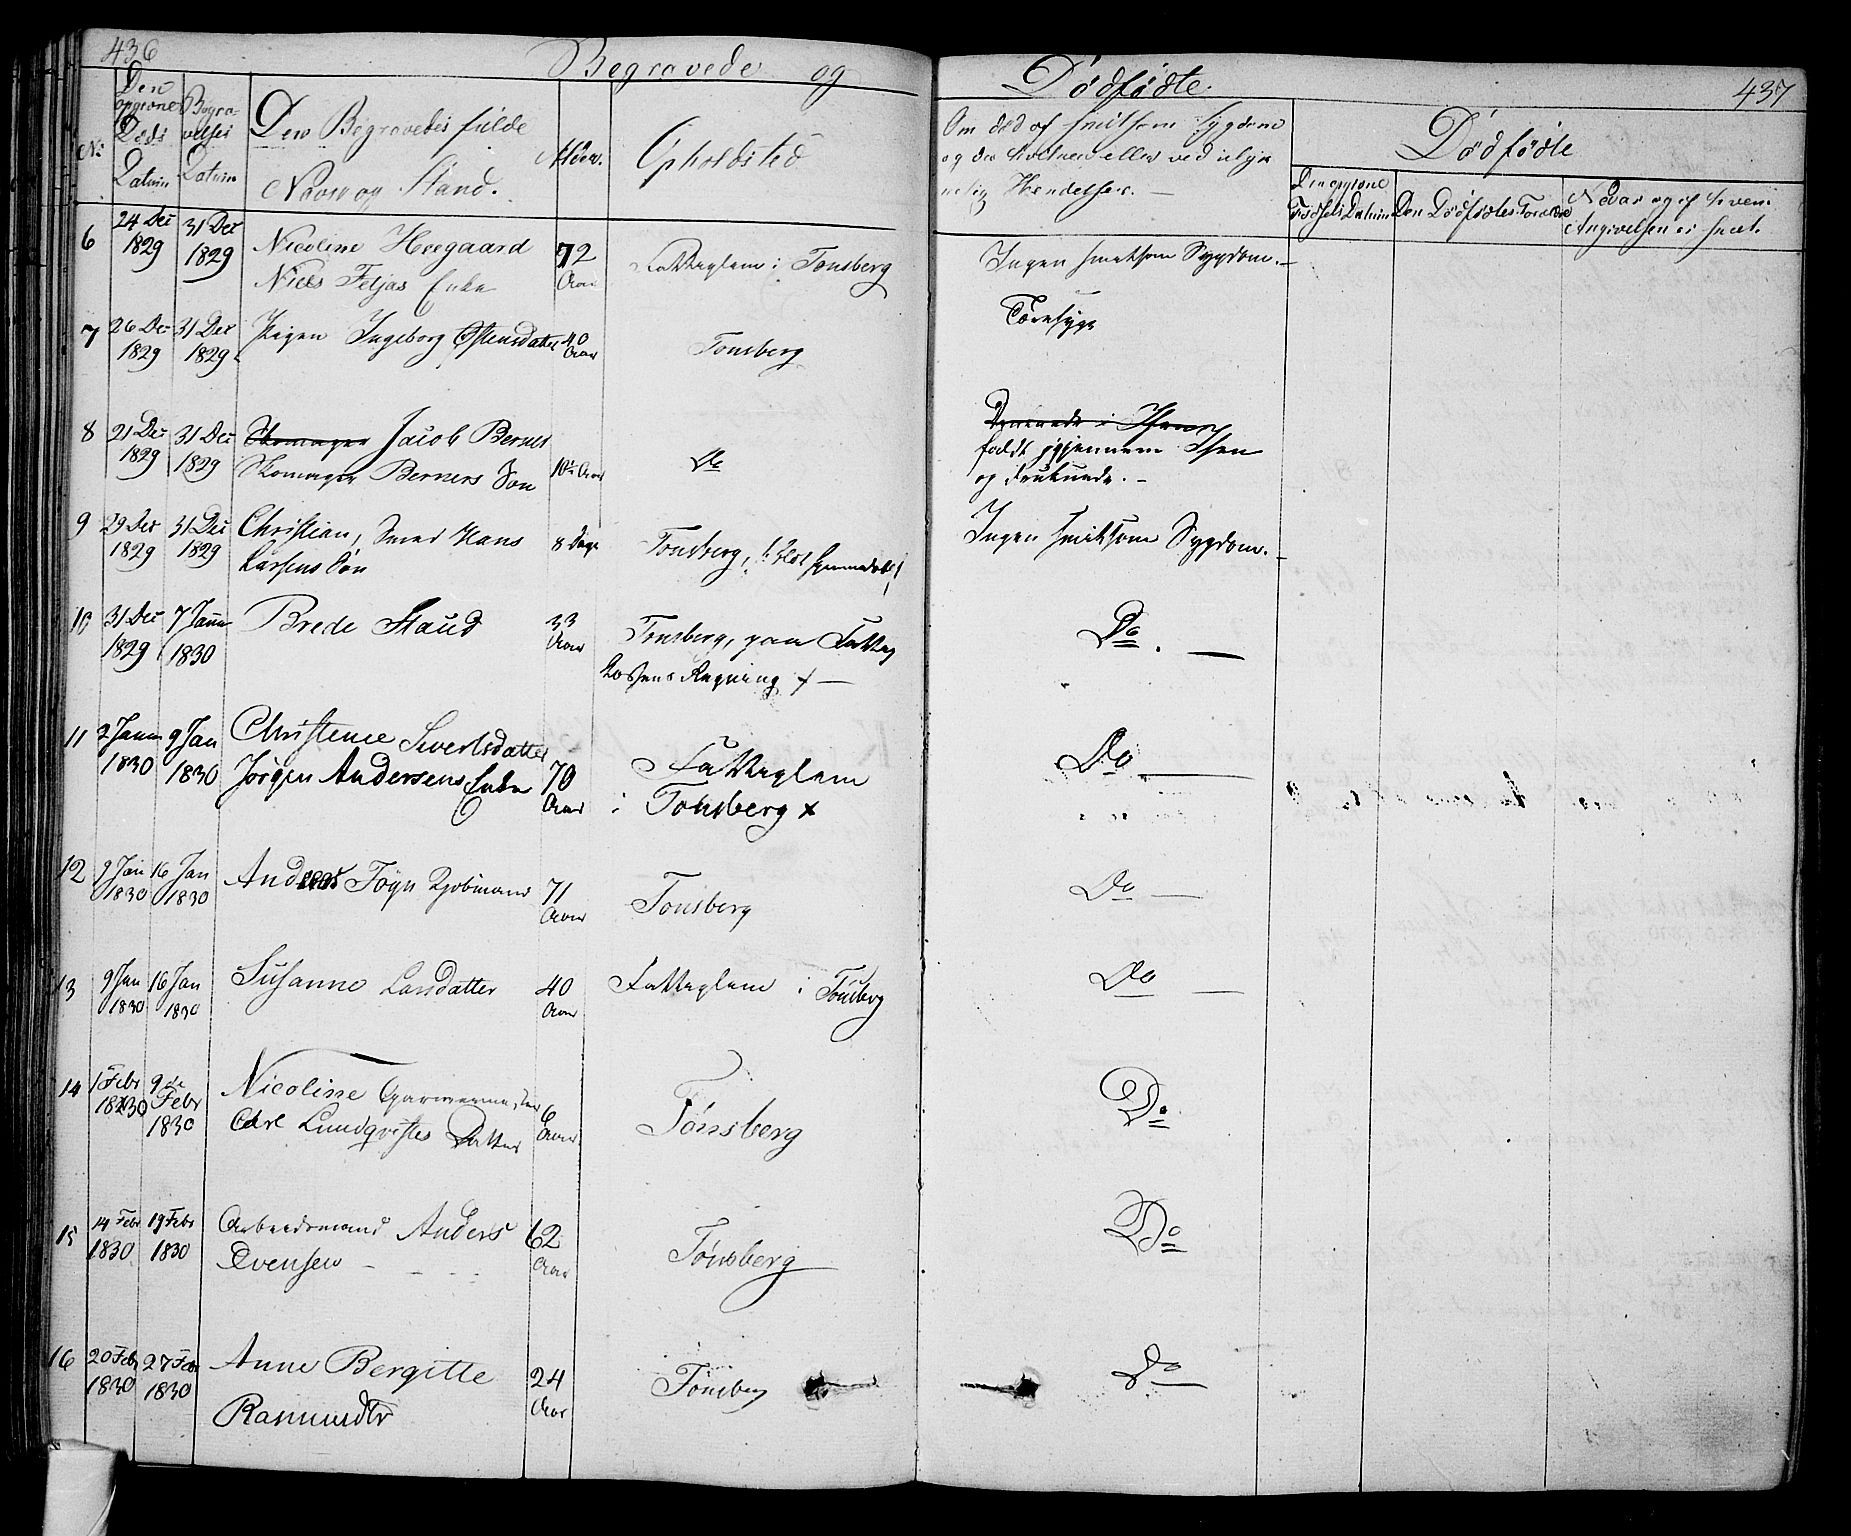 436
Begravede og Dødfødte.
437
No
Den opgivne Døds Datum
Begravelses Datum
Den Begravedes fulde
Navn og Stand.
Alder.
Opholdsted
Om død af smitsom Sygdom
Hændelser. —
Dødfødte
Den opgivne
Fødsels Datum
Den Dødfødtes Forældre
Angivelsen er skeet.
6 24 Dec 1829 31 Dec 1829 Nicoline Heegaard 72 Aar Fattiglem i Tonsberg Ingen smitsom Sygdom. —
Niels Feljas Enke
7 26 Dec 1829 31 Dec 1829 Pigen Ingeborg Ostensdatter 40 Aar Tonsberg Tæresyge
8 21 Dec 1829 31 Dec 1829 Skomager Jacob Berner 10½ Aar Do
Skomager Berners Søn
faldt igjennem Isen
og druknede. —
9 29 Dec 1829 31 Dec 1829 Christian, Smed Hans 8 Dage Tonsberg, Ingen smitsom Sygdom. —
Larsens Søn
10 31 Dec 1829 7 Janu 1830 Brede Staud 33 Aar Tonsberg, paa Fattig Do. —
Kassens Regning + —
11 2 Janu 1830 9 Jan 1830 Christence Sivertsdatter 70 Aar Fattiglem Do —
Jørgen Andersens Enke i Tonsberg x
12 9 Jan 1830 16 Jan 1830 Anders Føyn Kjøbmand 71 Aar Tonsberg Do —
13 9 Jan 1830 16 Jan 1830 Susanne Larsdatter 40 Aar Fattiglem i Tonsberg Do —
14 1 Febr 1830 9de Febr 1830 Nicoline Garvermester 6 Aar Tønsberg Do
Carl Lundqvistes Datter
15 14 Febr 1830 19 Febr 1830 Arbeidsmand Anders 62 Aar Tønsberg Do
Evensen - - - -
16 20 Febr 1830 27 Febr 1830 Anne Bergitte 24 Aar Tønsberg Do
Rasmusdtr